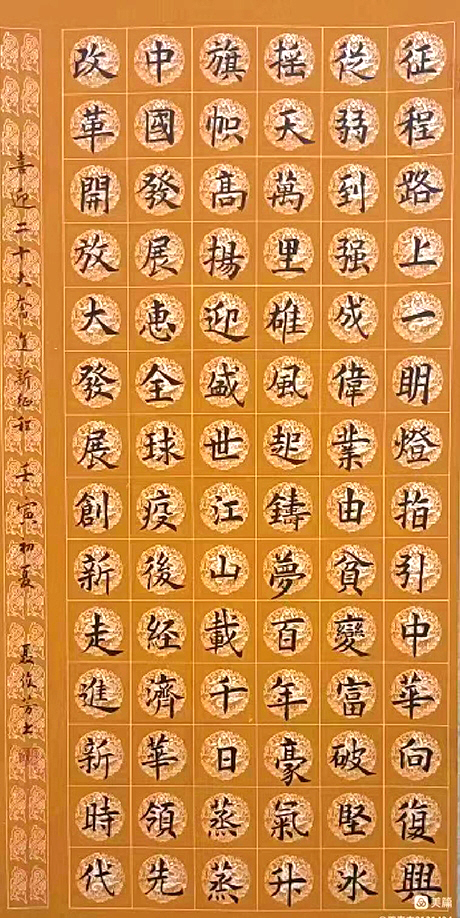 征程路上一明燈指引中華向復興
從弱到强成偉業由貧變富破堅氷
摇天萬里雄風起鑄夢百年豪氣升
旗幟髙揚迎盛世江山載千日蒸蒸
中國發展惠全球疫後経濟華領先
改革開放大發展創新走進新時代
喜迎二十大奮進新征程 壬寅初夏
美篇